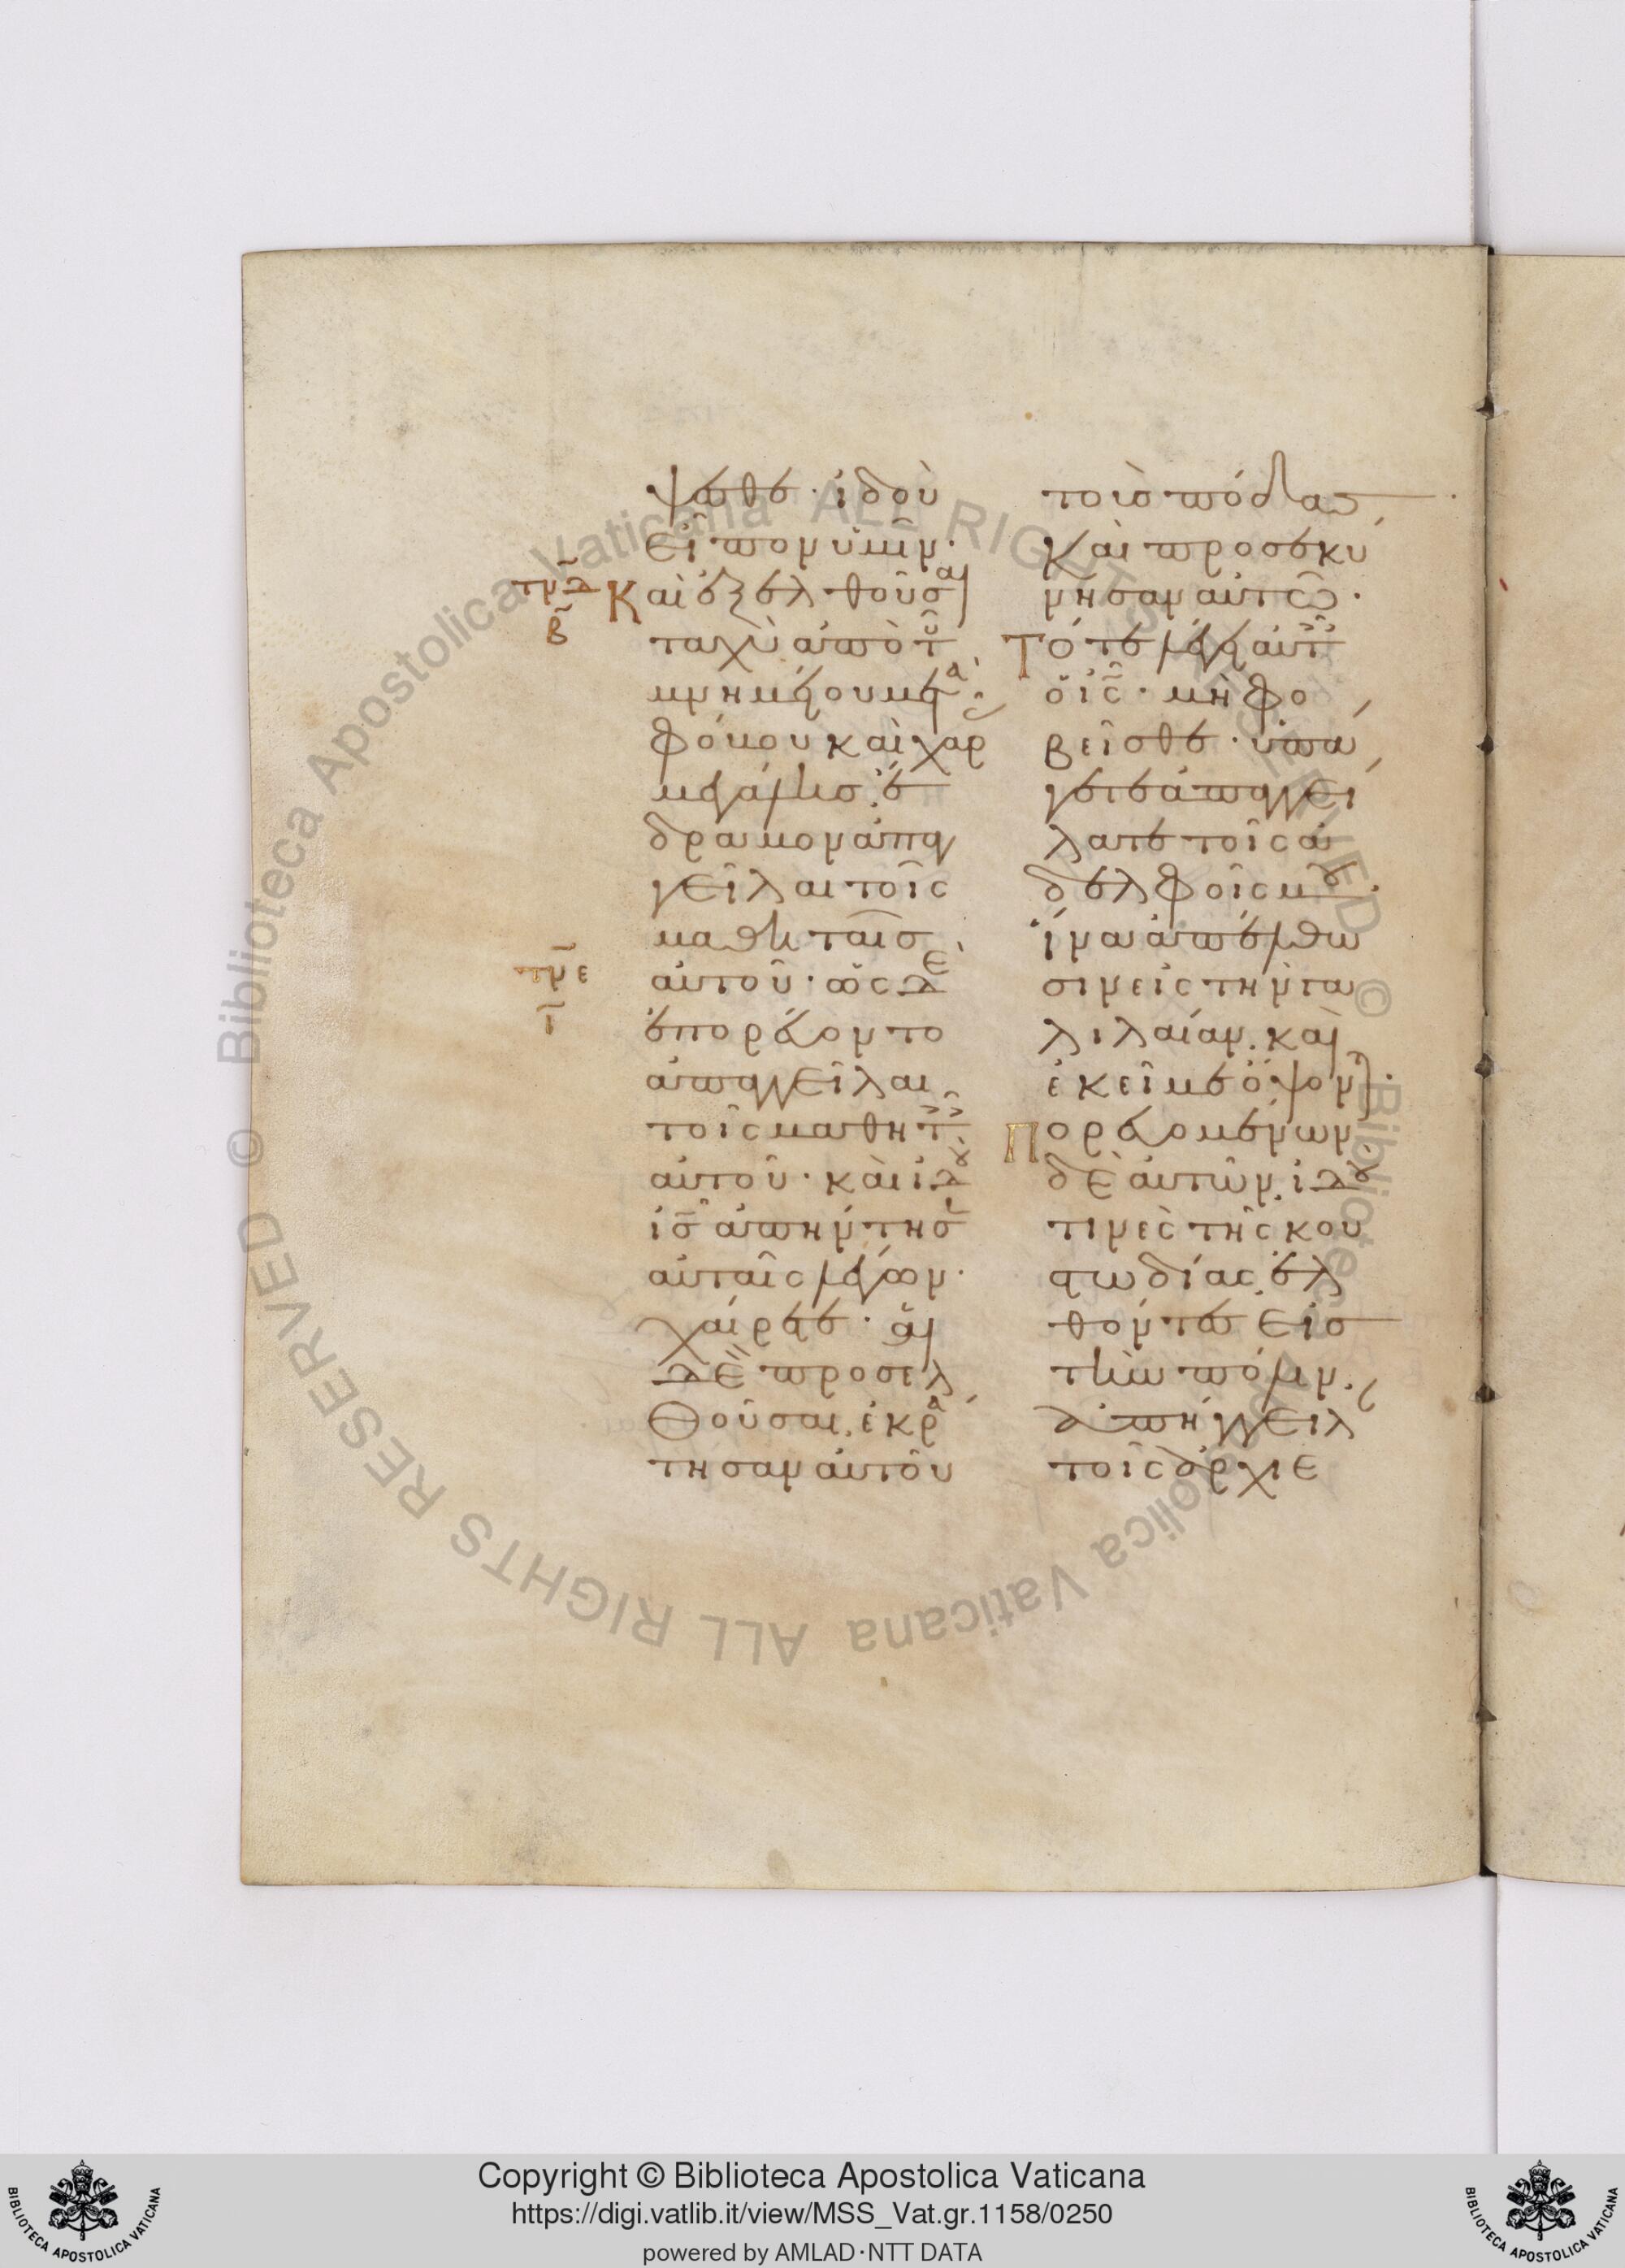 ψεσθε· ἰδοὺ
εῖπον ὑμῖν·
τμδ
Καὶ ἐξελθοῦσαι
β
ταχὺ ἀπὸ τοῦ
μνημείου μετὰ
φόβου καὶ χαρ
μεγάλης ἔ
δραμον ἀπαγ
γεῖλαι τοῖς
μαθηταῖσ
τμε
αὐτοῦ· ὡς δὲ
ι
ἐπορεύοντο
ἀπαγγεῖλαι
τοῖς μαθητ
αὐτοῦ· καὶ ἰδοὺ
ἰς ἀπήντησ
αὐταῖς λέγων·
χαίρετε· αἱ
δὲ προσελ
θοῦσαι, ἐκρά
τησαν αὐτοῦ
τοὺσ πόδασ
καὶ προσεκύ
νησαν αὐτῶ·
Τότε λέγει αὐτ
ὁ ἰς· μὴ φο
βεῖσθε· ὑπά
γετε ἀπαγγεί
λατε τοῖς ἀ
δελφοῖς μου·
ἵνα ἀπέλθω
σιν εἰς τὴν γα
λιλαίαν· καὶ
ἐκεῖ με ὄψοντ·
Πορευομένων
δὲ αὐτῶν, ἰδοὺ
τινὲς τῆς κου
στωδίας ἐλ
θόντες εἰσ
τὴν πόλιν,
ἀπήγγειλ
τοῖς ἀρχιε
Copyright © Biblioteca Apostolica Vaticana
https://digi.vatlib.it/view/MSS_Vat.gr.1158/0250
powered by AMLAD·NTT DATA
BIBLIOTECA APOSTOLICA VATICANA
BIBLIOTECA APOSTOLICA VATICANA
© Biblioteca Apostolica Vaticana ALL RIGHTS RESERVED © Biblioteca Apostolica Vaticana ALL RIGHTS RESERVED